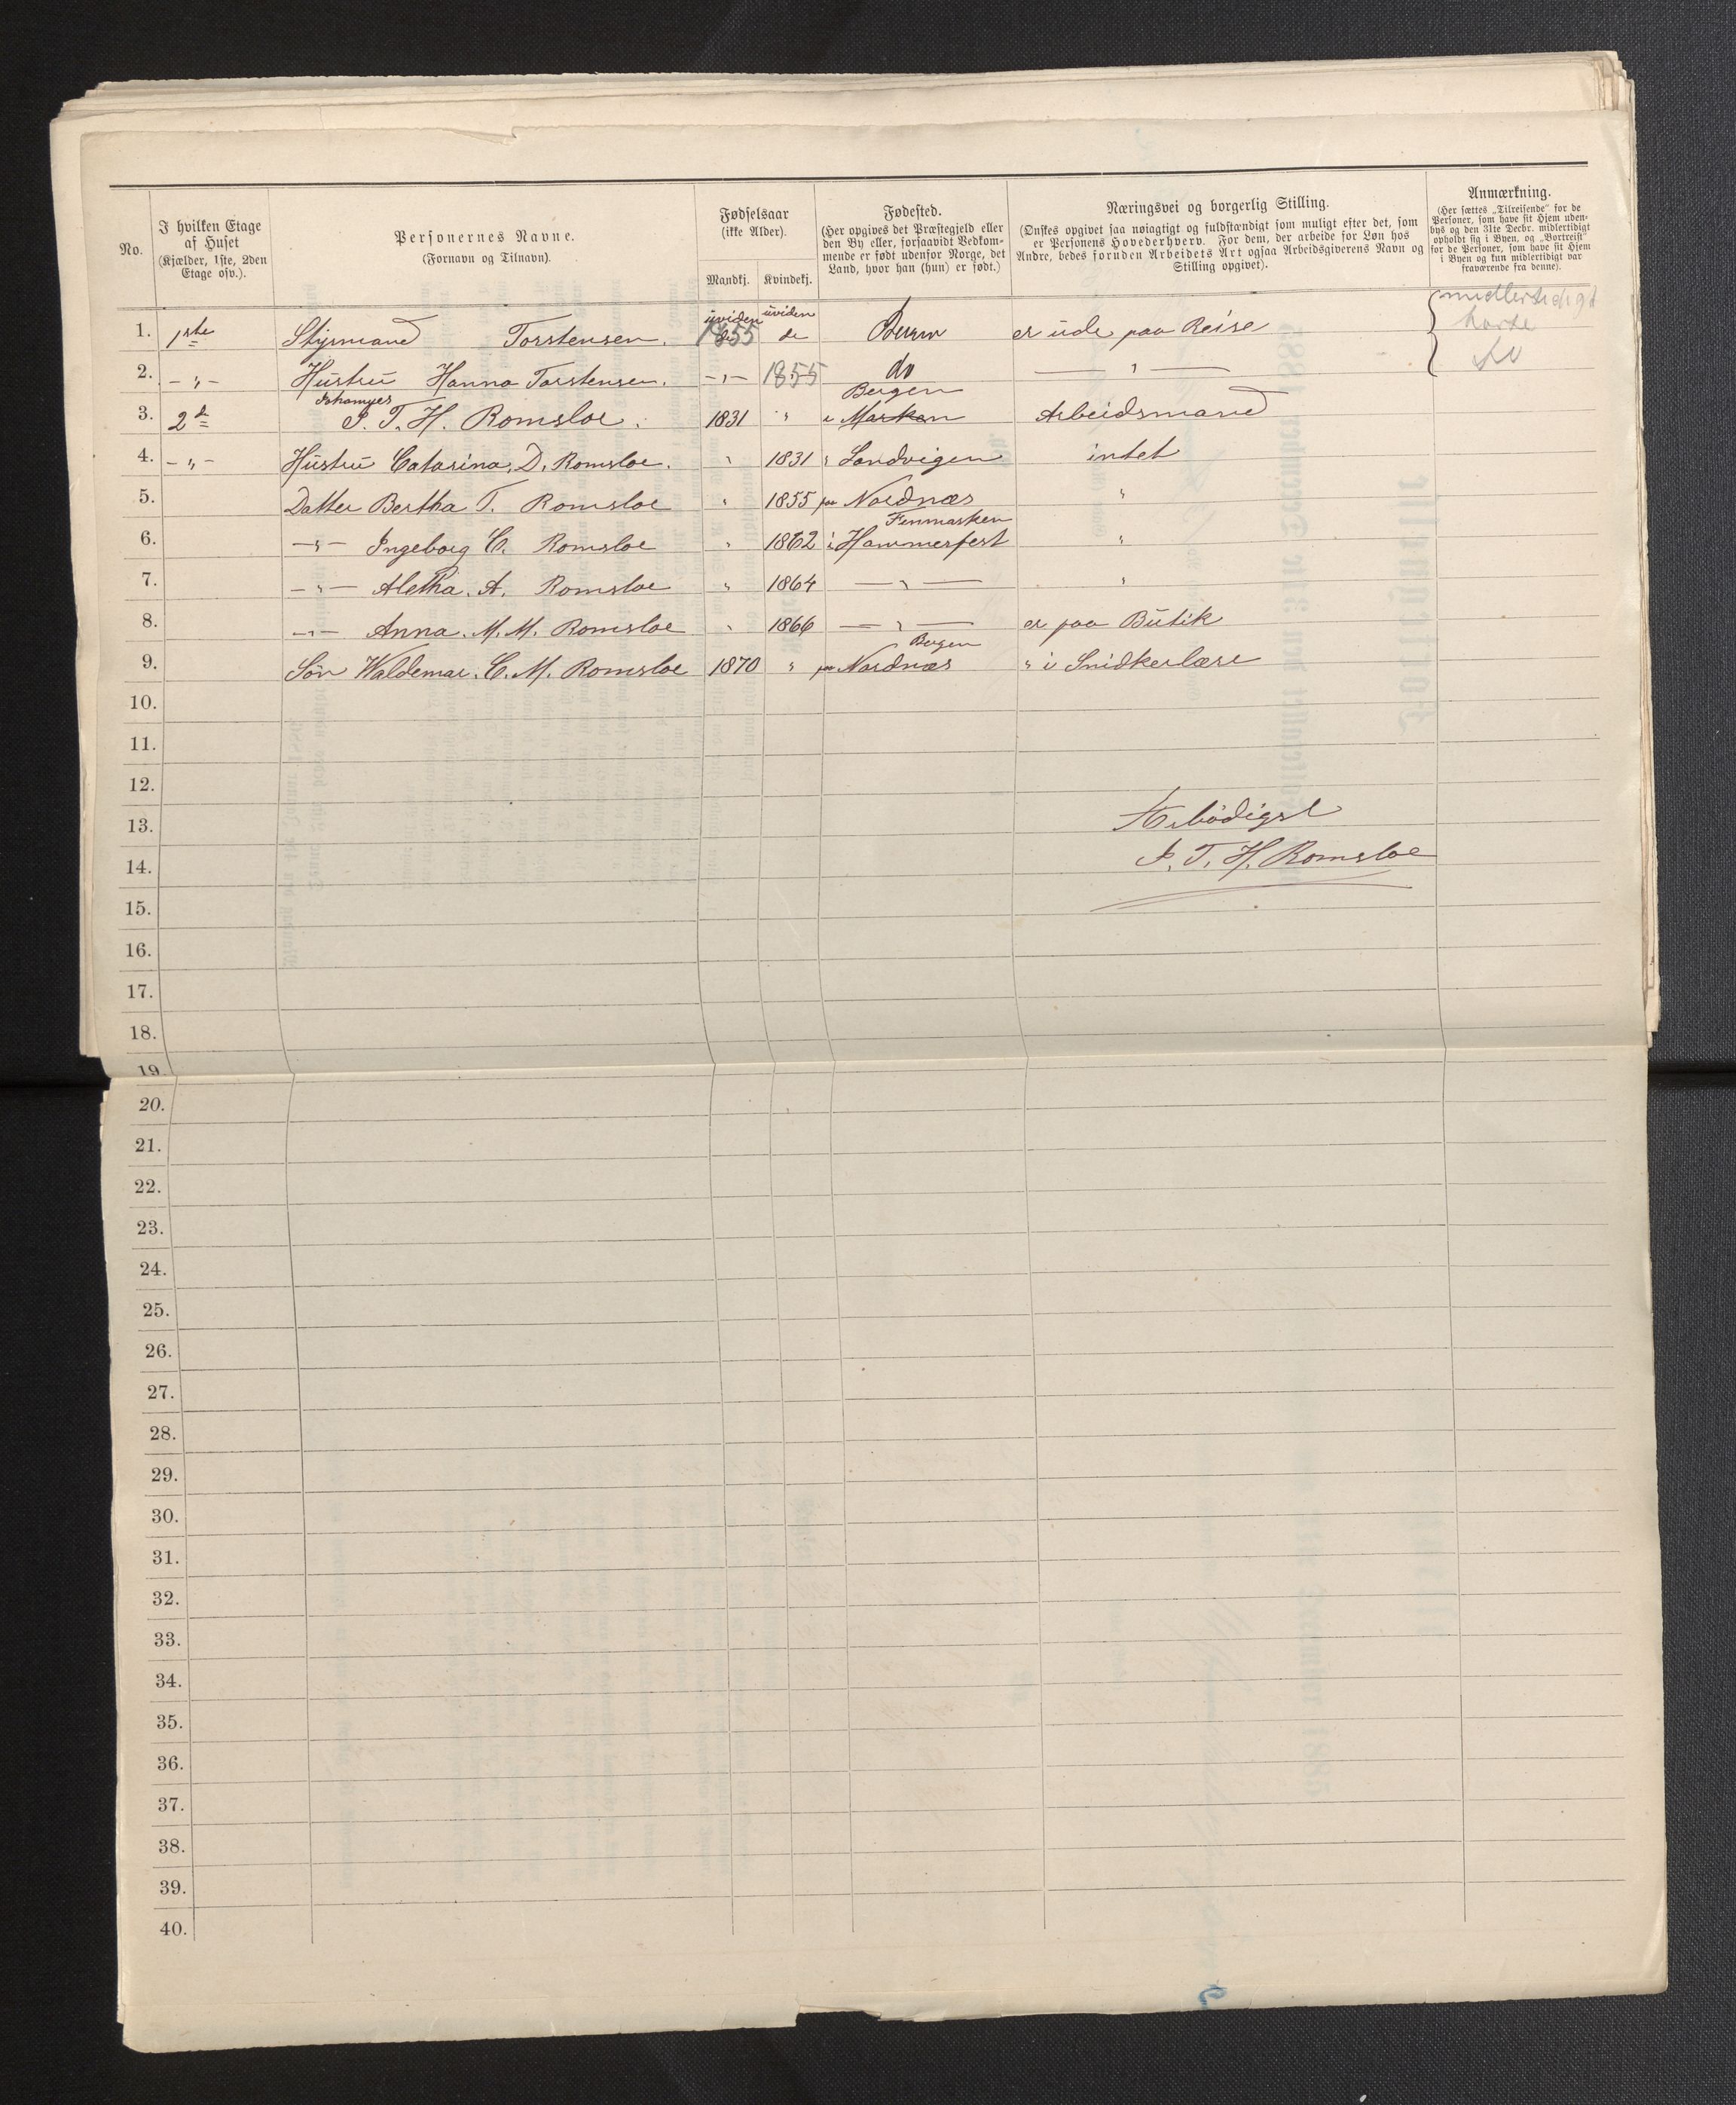 No.
I hvilken Etage af Huset (Kjælder, 1ste, 2den Etage osv.).
Personernes Navne. (Fornavn og Tilnavn).
Fødselsaar (ikke Alder).
Mandkj. Kvindekj.
Fødested. (Her opgives det Præstegjeld eller den By eller, forsaavidt Vedkommende er født udenfor Norge, det Land, hvor han (hun) er født.)
Næringsvei og borgerlig Stilling. (Ønskes opgivet saa nøiagtigt og fuldstændigt som muligt efter det, som er Personens Hovederhverv. For dem, der arbeide for Løn hos Andre, bedes foruden Arbeidets Art ogsaa Arbeidsgiverens Navn og Stilling opgivet).
Anmærkning. (Her sættes „Tilreisende" for de Personer, som have sit Hjem udenbys og den 31te Decbr. midlertidigt opholdt sig i Byen, og „Bortreist" for de Personer, som have sit Hjem i Byen og kun midlertidigt var fraværende fra denne).
1. 1ste Styrmand Torstensen. uvidende 1855 uvidende er ude paa Reise midlertidigt
2. -„- Hustru Hanna Torstensen. -„- 1855 do — „ —
3. 2d Johannes J. T. H. Romsloe. 1831 „ i Marken Bergen Arbeidsmand
4. -„- Hustru Catarina. D. Romsloe. „ 1831 „ Sandvigen intet
5. Datter Bertha T. Romsloe „ 1855 paa Nordnæs „
6. -„- Ingeborg C. Romsloe „ 1862 i Hammerfest Finmarken „
7. -„- Aletha. A. Romsloe „ 1864 — „ — „
8. -„- Anna. M. M. Romsloe „ 1866 — „ — er paa Butik
9. Søn Waldemar. C. M. Romsloe 1870 „ paa Nordnæs Bergen „ i Snidkerlære
10.
11.
12.
13. Ærbødigst
14. J. T. H. Romsloe
15.
16.
17.
18.
19.
20.
21.
22.
23.
24.
25.
26.
27.
28.
29.
30.
31.
32.
33.
34.
35.
36.
37.
38.
39.
40.